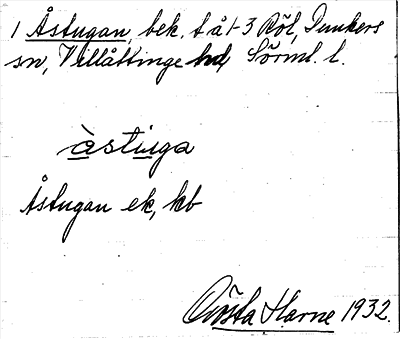 1 Åstugan, bek. t å 1-3 Röl, Dunkers
sn, Villåttinge hd, Sörml. l.
àstuga
Åstugan ek, kb
Gösta Harne 1932.